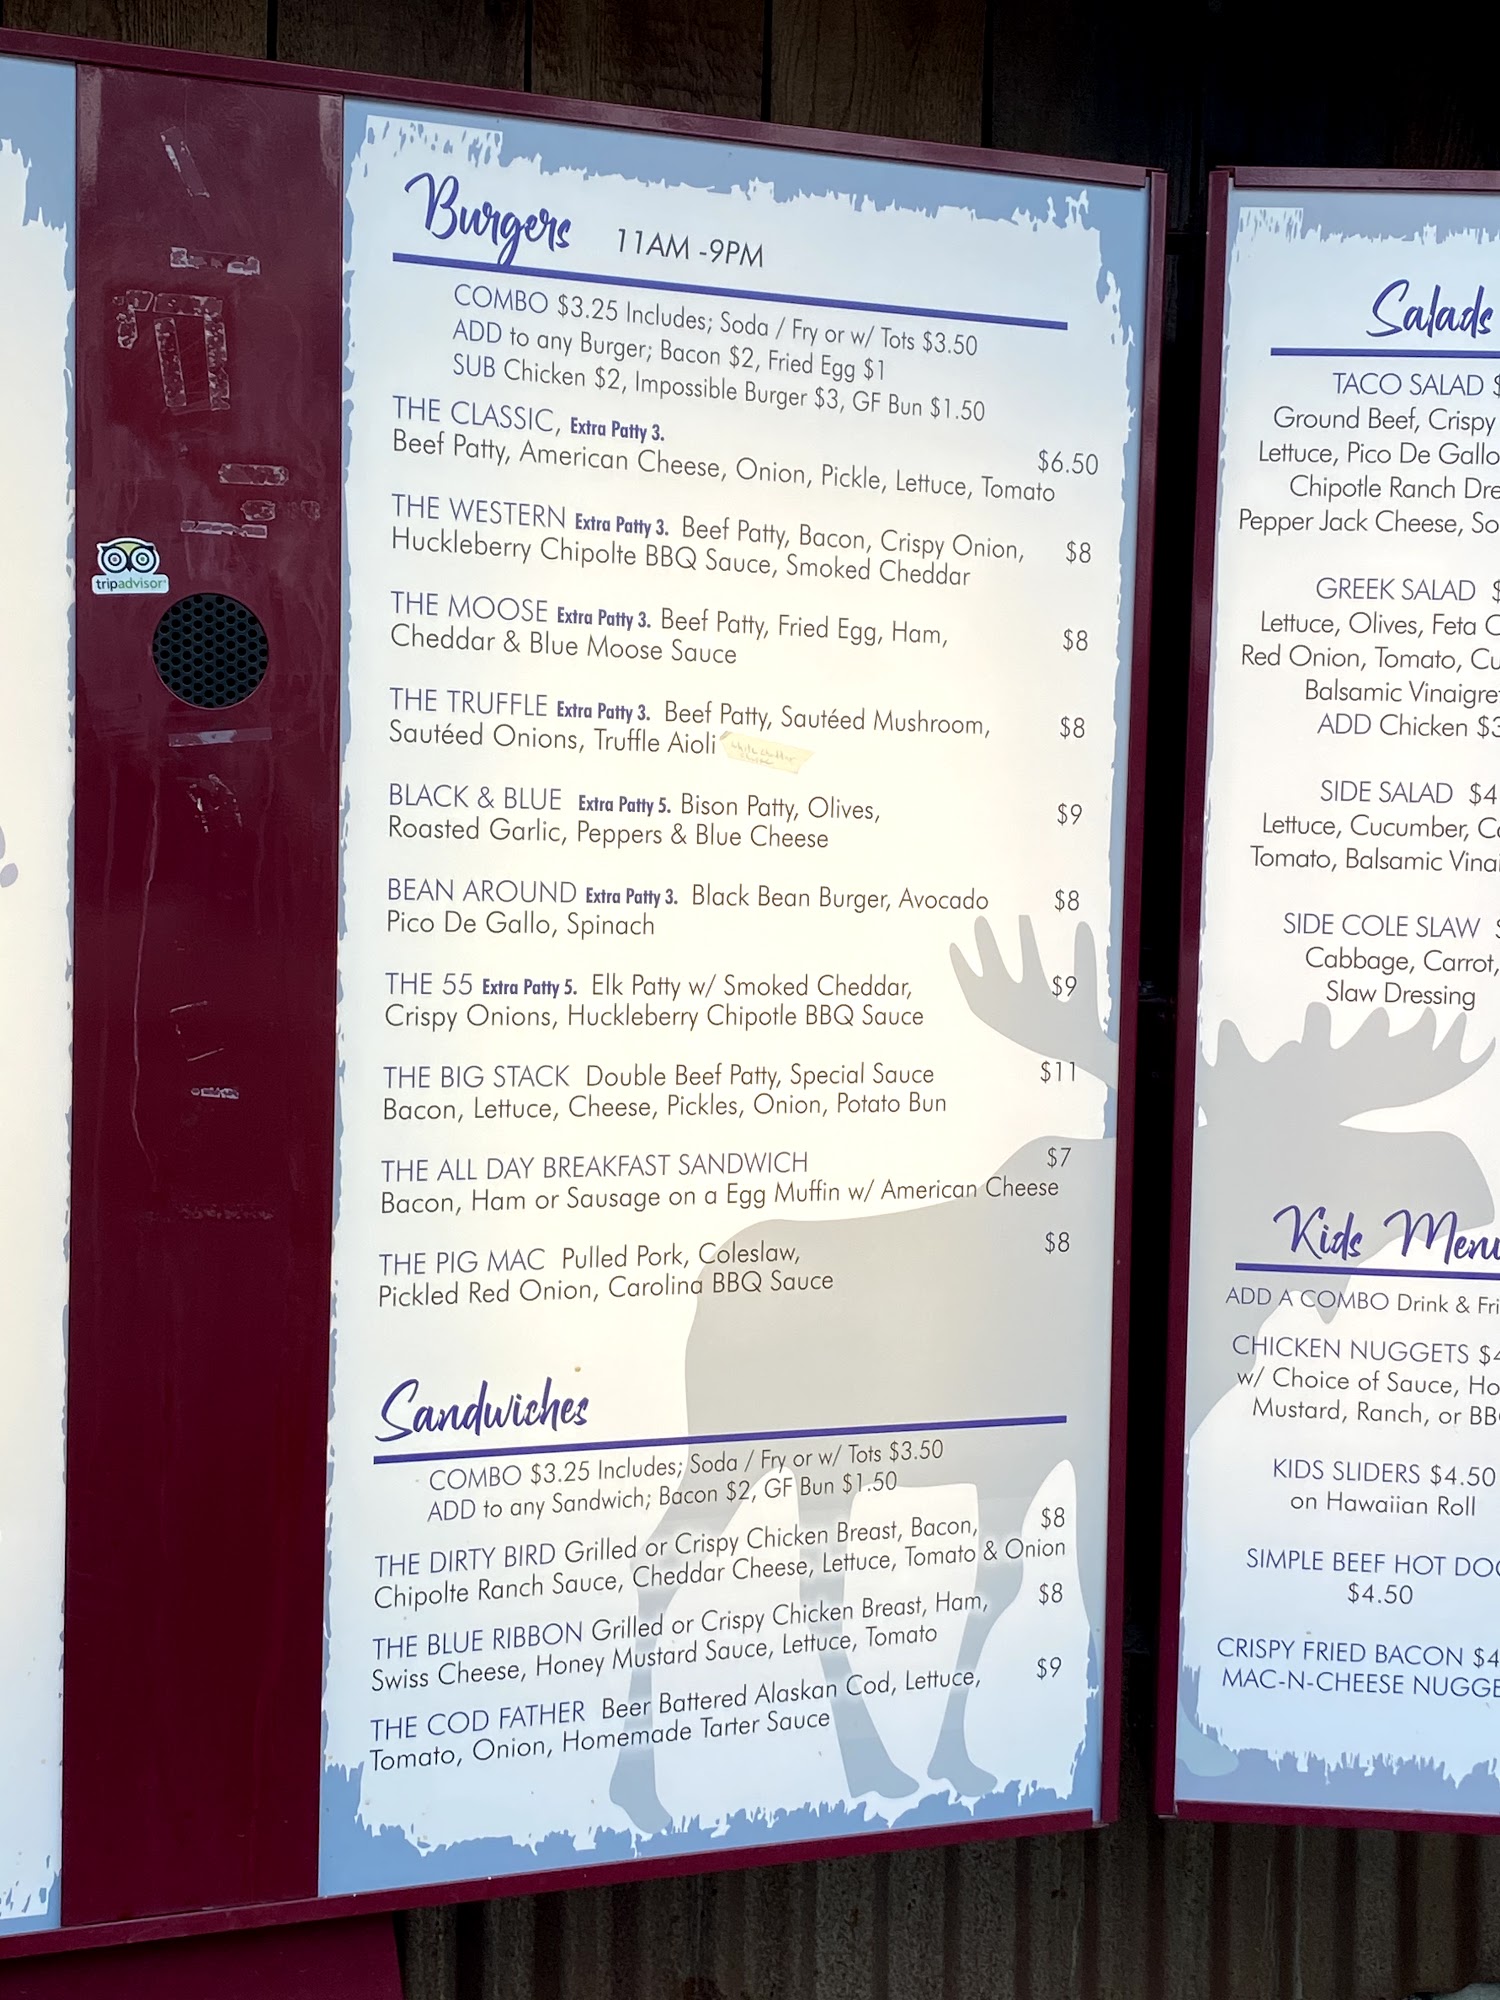 tripadvisor
Burgers 11AM -9PM
COMBO $3.25 Includes; Soda / Fry or w/ Tots $3.50
ADD to any Burger; Bacon $2, Fried Egg $1
SUB Chicken $2, Impossible Burger $3, GF Bun $1.50
THE CLASSIC, Extra Patty 3. $6.50
Beef Patty, American Cheese, Onion, Pickle, Lettuce, Tomato
THE WESTERN Extra Patty 3. Beef Patty, Bacon, Crispy Onion, $8
Huckleberry Chipolte BBQ Sauce, Smoked Cheddar
THE MOOSE Extra Patty 3. Beef Patty, Fried Egg, Ham, $8
Cheddar & Blue Moose Sauce
THE TRUFFLE Extra Patty 3. Beef Patty, Sautéed Mushroom, $8
Sautéed Onions, Truffle Aioli
BLACK & BLUE Extra Patty 5. Bison Patty, Olives, $9
Roasted Garlic, Peppers & Blue Cheese
BEAN AROUND Extra Patty 3. Black Bean Burger, Avocado $8
Pico De Gallo, Spinach
THE 55 Extra Patty 5. Elk Patty w/ Smoked Cheddar, $9
Crispy Onions, Huckleberry Chipotle BBQ Sauce
THE BIG STACK Double Beef Patty, Special Sauce $11
Bacon, Lettuce, Cheese, Pickles, Onion, Potato Bun
THE ALL DAY BREAKFAST SANDWICH $7
Bacon, Ham or Sausage on a Egg Muffin w/ American Cheese
THE PIG MAC Pulled Pork, Coleslaw, $8
Pickled Red Onion, Carolina BBQ Sauce
Sandwiches
COMBO $3.25 Includes; Soda / Fry or w/ Tots $3.50
ADD to any Sandwich; Bacon $2, GF Bun $1.50
THE DIRTY BIRD Grilled or Crispy Chicken Breast, Bacon, $8
Chipolte Ranch Sauce, Cheddar Cheese, Lettuce, Tomato & Onion
THE BLUE RIBBON Grilled or Crispy Chicken Breast, Ham, $8
Swiss Cheese, Honey Mustard Sauce, Lettuce, Tomato
THE COD FATHER Beer Battered Alaskan Cod, Lettuce, $9
Tomato, Onion, Homemade Tarter Sauce
Salads
TACO SALAD $
Ground Beef, Crispy
Lettuce, Pico De Gallo
Chipotle Ranch Dre
Pepper Jack Cheese, So
GREEK SALAD $
Lettuce, Olives, Feta C
Red Onion, Tomato, Cu
Balsamic Vinaigre
ADD Chicken $3
SIDE SALAD $4
Lettuce, Cucumber, Ca
Tomato, Balsamic Vinai
SIDE COLE SLAW $
Cabbage, Carrot,
Slaw Dressing
Kids Menu
ADD A COMBO Drink & Fri
CHICKEN NUGGETS $4
w/ Choice of Sauce, Ho
Mustard, Ranch, or BB
KIDS SLIDERS $4.50
on Hawaiian Roll
SIMPLE BEEF HOT DOG
$4.50
CRISPY FRIED BACON $4
MAC-N-CHEESE NUGGE